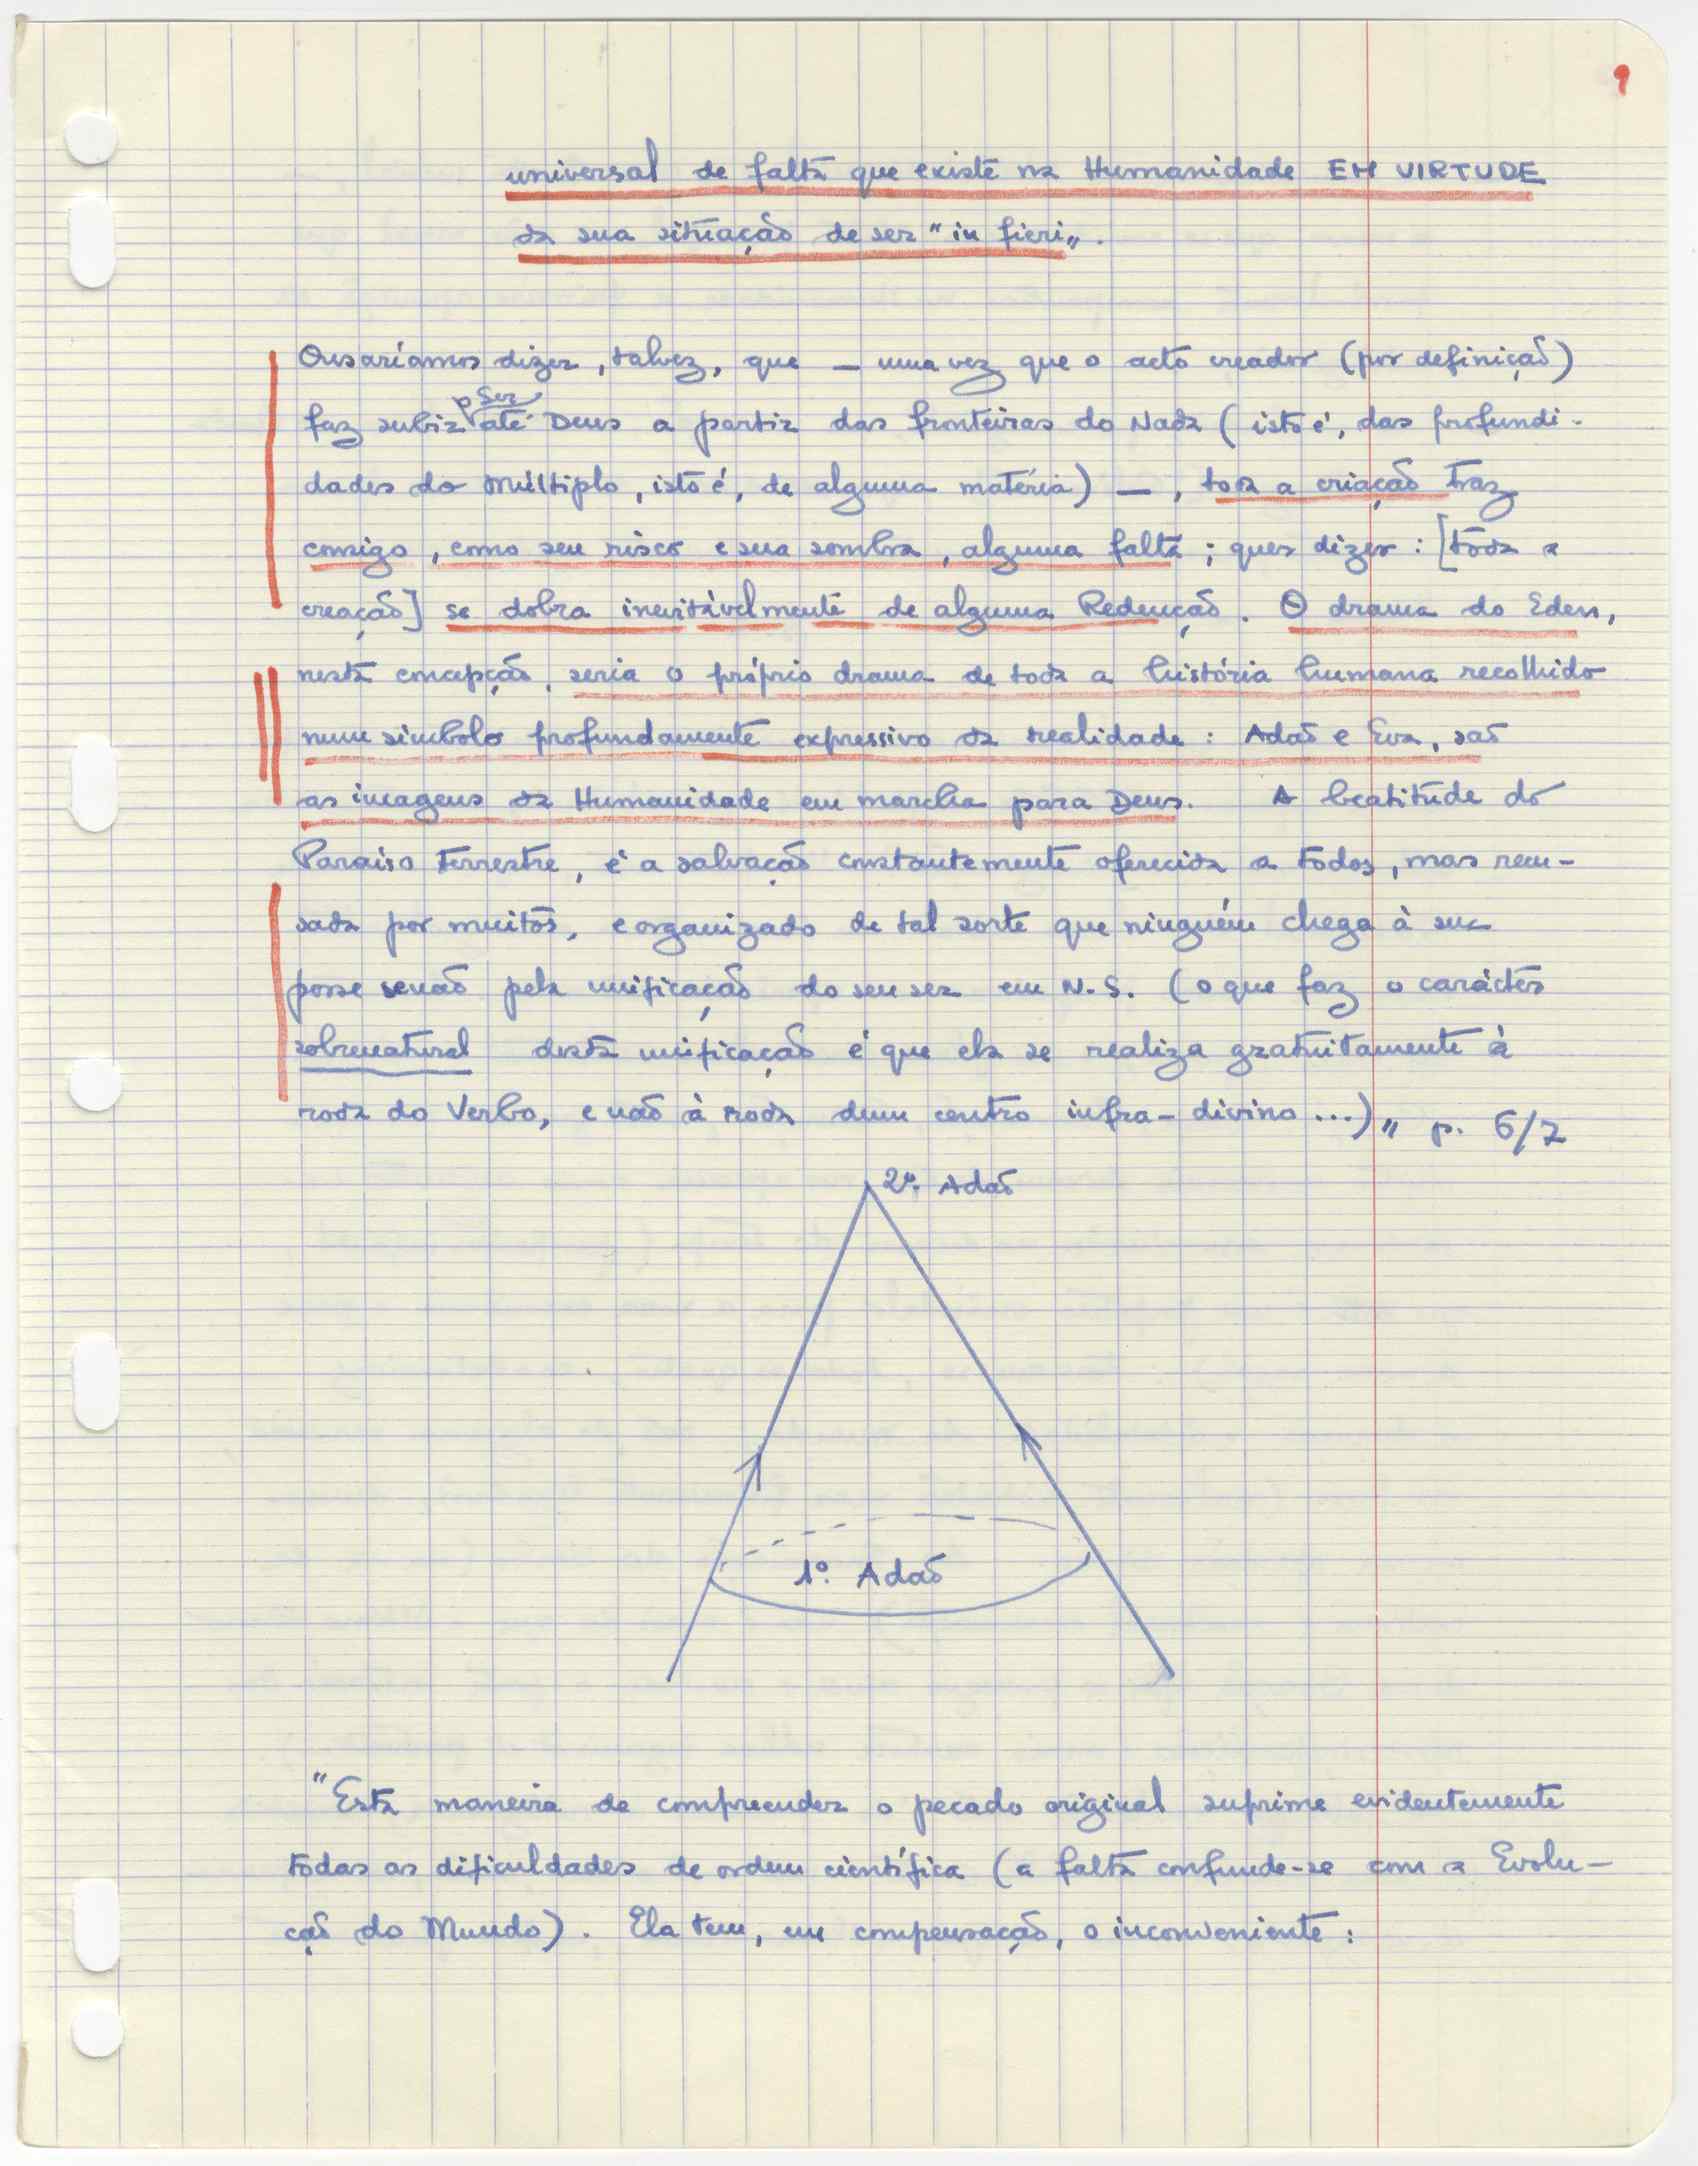 9
universal de falta que existe na Humanidade EM VIRTUDE
da sua situação de ser "in fieri".
Ousaríamos dizer, talvez, que — uma vez que o acto creador (por definição)
o Ser
faz subir até Deus a partir das fronteiras do Nada (isto é, das profundi-
dades do Múltiplo, isto é, de alguma matéria) —, toda a criação traz
consigo, como seu risco e sua sombra, alguma falta; quer dizer: [toda a
creação] se dobra inevitàvelmente de alguma Redenção. O drama do Eden,
nesta concepção, seria o próprio drama de toda a história humana recolhido
num símbolo profundamente expressivo da realidade: Adão e Eva, são
as imagens da Humanidade em marcha para Deus. A beatitude do
Paraíso Terrestre, é a salvação constantemente oferecida a todos, mas recu-
sada por muitos, e organizado de tal sorte que ninguém chega à sua
posse senão pela unificação do seu ser em N.S. (o que faz o carácter
sobrenatural desta unificação é que ela se realiza gratuitamente à
roda do Verbo, e não à roda dum centro infra-divino ...)" p. 6/7
2º. Adão
1º. Adão
"Esta maneira de compreender o pecado original suprime evidentemente
todas as dificuldades de ordem científica (a falta confunde-se com a Evolu-
ção do Mundo). Ela tem, em compensação, o inconveniente: